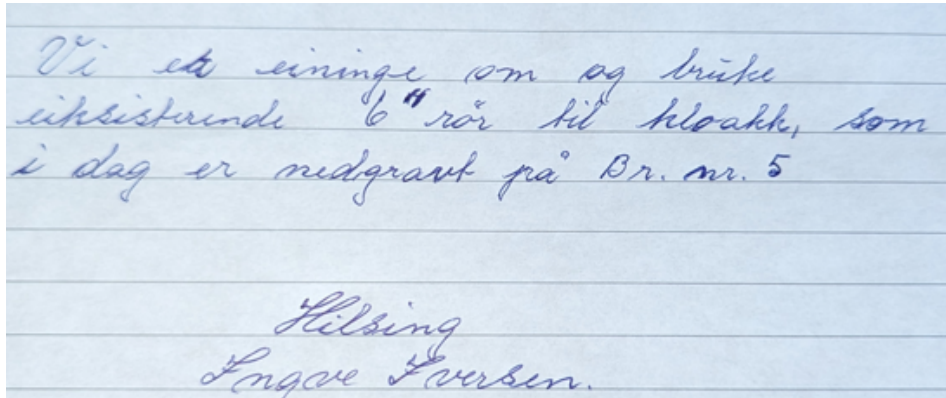 Vi er eininge om og bruke
eiksisterende 6" rör til kloakk, som
i dag er nedgravt på Br. nr. 5
Hilsing
Ingve Iversen.